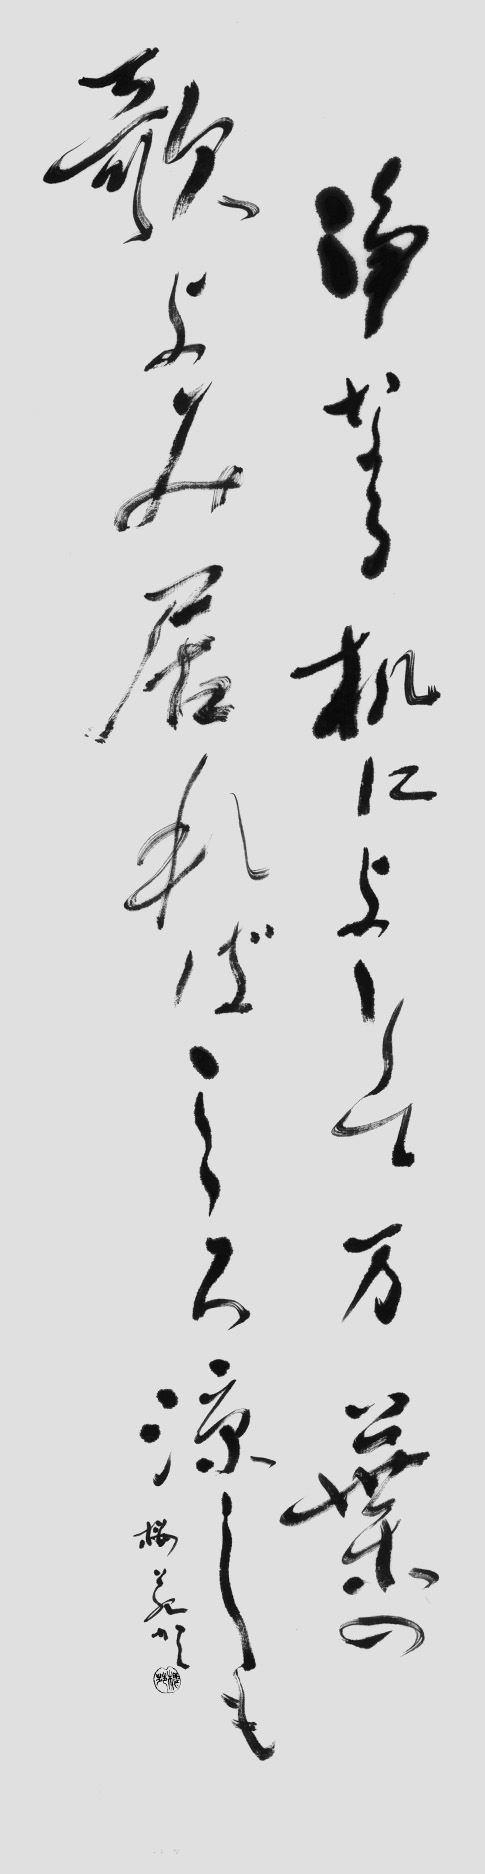 浄なる机によりて万葉の
歌よみ居ればこころ涼しも